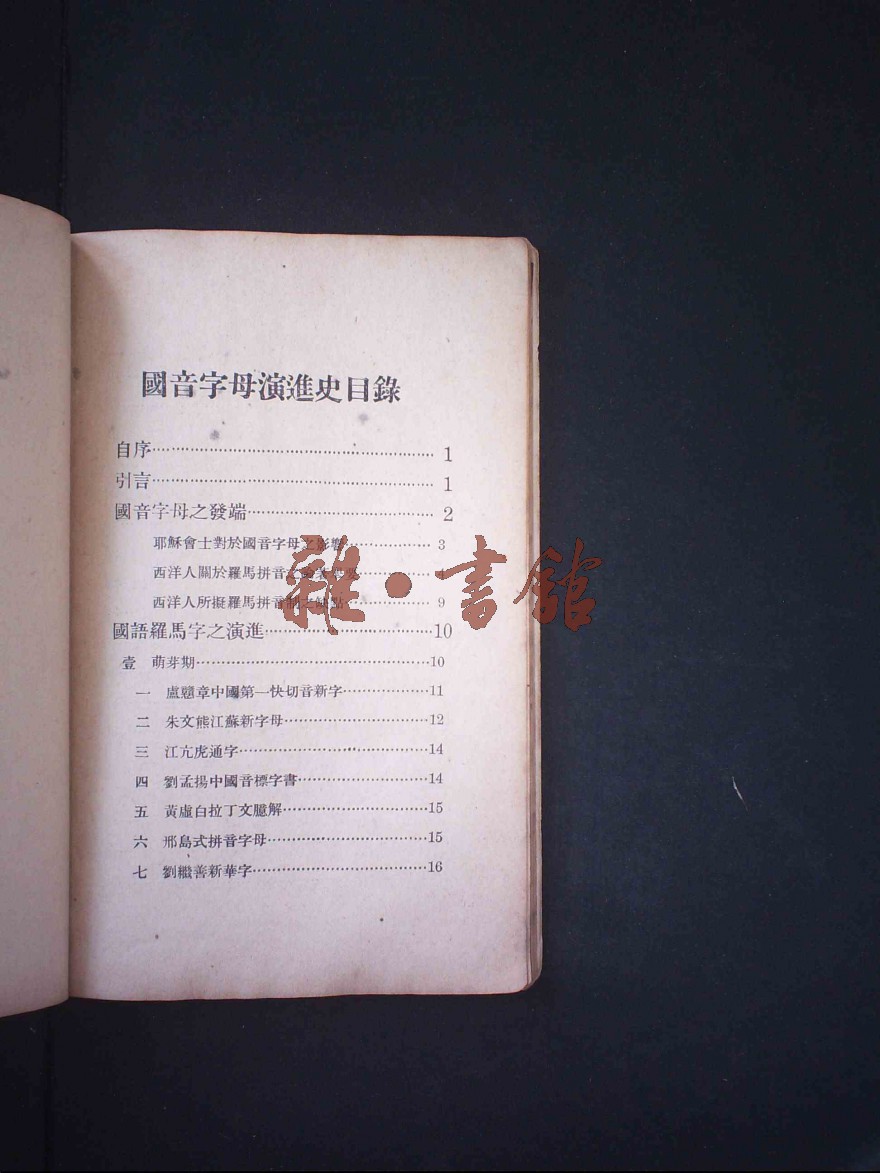 國音字母演進史目錄
自序 1
引言 1
國音字母之發端 2
耶穌會士對於國音字母之影響 3
西洋人關於羅馬拼音之
西洋人所擬羅馬拼音制之缺點 9
國語羅馬字之演進 10
壹 萌芽期 10
一 盧戇章中國第一快切音新字 11
二 朱文熊江蘇新字母 12
三 江亢虎通字 14
四 劉孟揚中國音標字書 14
五 黃虛白拉丁文臆解 15
六 邢島式拼音字母 15
七 劉繼善新華字 16
雜·書館